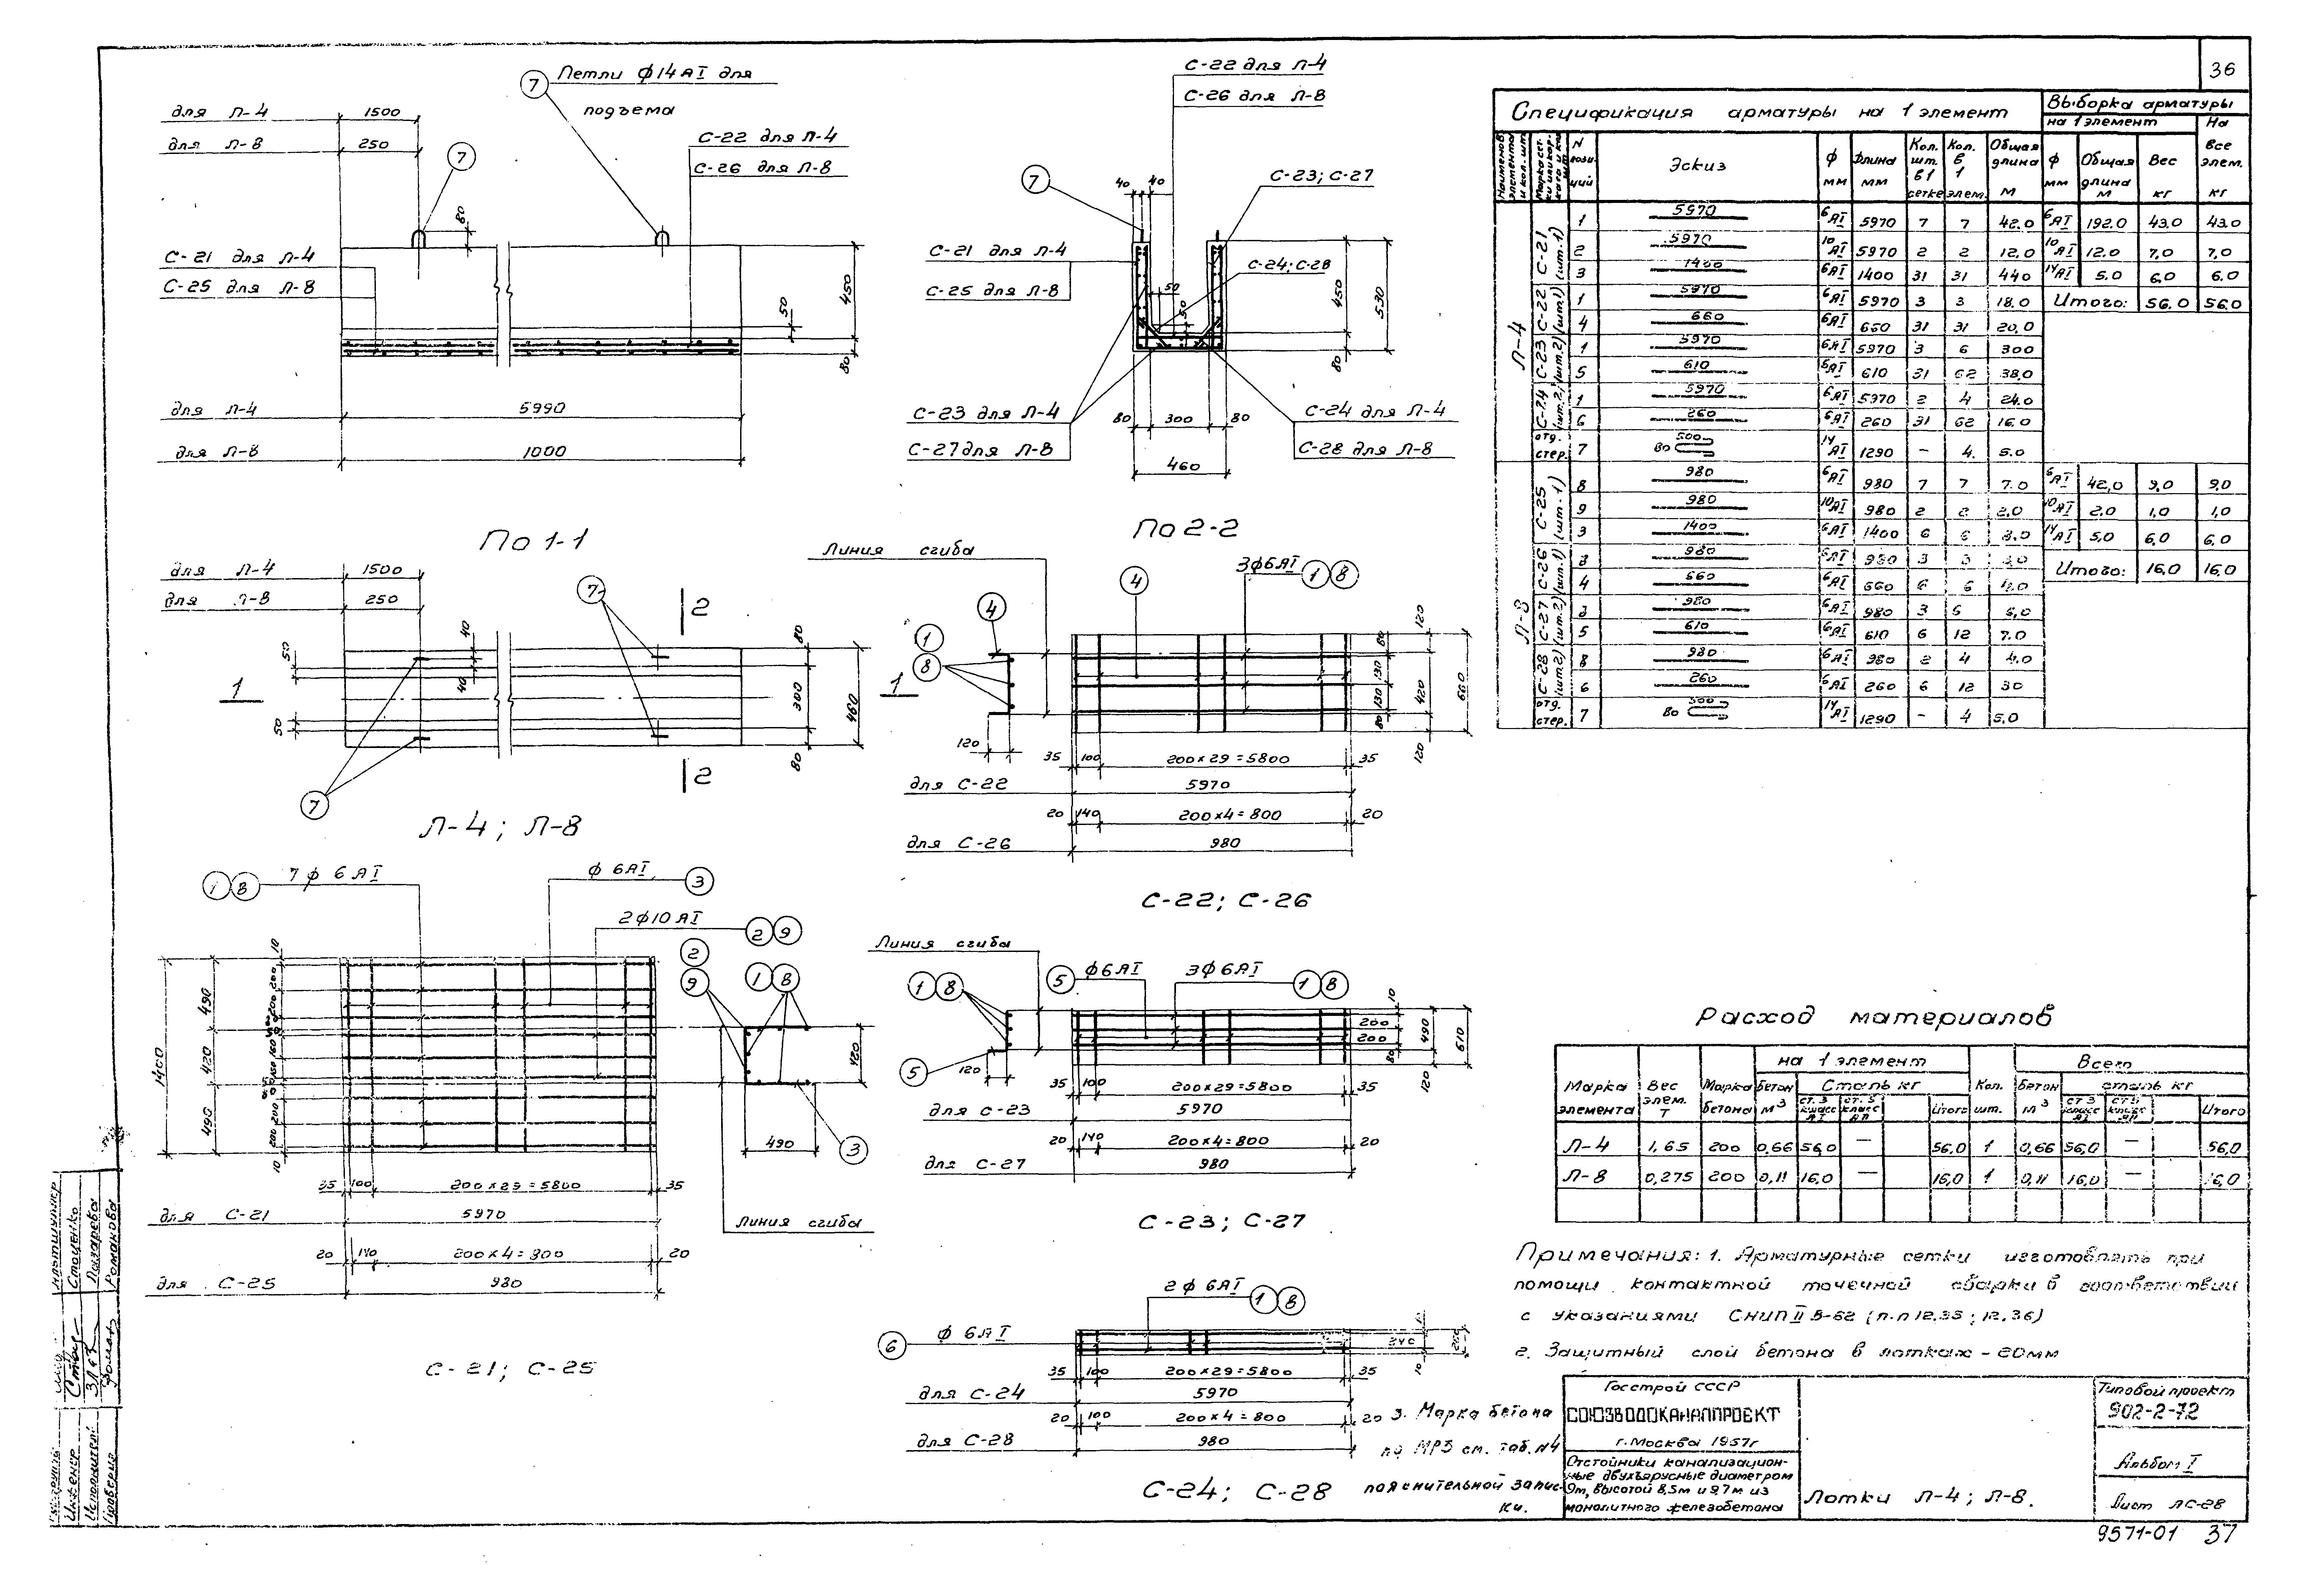 36
Петли ϕ14АĪ для
подъема
7
для Л-4 1500
для Л-8 250
7
С-22 для Л-4
С-26 для Л-8
80
С-21 для Л-4
С-25 для Л-8
50
450
80
для Л-4 5990
для Л-8 1000
По 1-1
С-22 для Л-4
С-26 для Л-8
7
40 40
С-23; С-27
С-21 для Л-4
С-25 для Л-8
С-24; С-28
50
50
450
530
80
С-23 для Л-4
С-27 для Л-8
80 300 80
460
С-24 для Л-4
С-28 для Л-8
По 2-2
для Л-4 1500
для Л-8 250
7
2
50
40
40
80
1
300
460
1
50
80
7
2
Л-4; Л-8
Линия сгиба
4
3ϕ6АĪ 1 8
4
1
8
120
120
80
130
130
80
420
660
120
35 100 200×29=5800 35
для С-22 5970
20 140 200×4=800 20
для С-26 980
С-22; С-26
1 8 7ϕ 6АĪ
ϕ 6АĪ 3
2ϕ10АĪ 2 9
2
9
1 8
10
200
200
490
160
420
1400
200
200
490
10
420
490
3
35 100 200×29=5800 35
для С-21 5970
Линия сгиба
20 140 200×4=800 20
для С-25 980
С-21; С-25
Линия сгиба
1 8
5 ϕ6АĪ 3ϕ6АĪ 1 8
10
200
200
80
490
610
120
5
120
35 100 200×29=5800 35
для С-23 5970
20 140 200×4=800 20
для С-27 980
С-23; С-27
2ϕ 6АĪ 1 8
6 ϕ 6АĪ
240
10
35 100 200×29=5800 35
для С-24 5970
20 100 200×4=800 20
для С-28 980
С-24; С-28
Спецификация арматуры на 1 элемент
Выборка арматуры
на 1 элемент
На все элем. кг
N позиций Эскиз ϕ мм Длина мм Кол. шт. в 1 сетке Кол. в 1 элем. Общая длина м ϕ мм Общая длина м Вес кг
Л-4
С-21 (шт.1)
1 5970 6АĪ 5970 7 7 42.0 6АĪ 192.0 43.0 43.0
2 5970 10АĪ 5970 2 2 12.0 10АĪ 12.0 7,0 7,0
3 1400 6АĪ 1400 31 31 440 14АĪ 5.0 6,0 6.0
С-22 (шт.1)
1 5970 6АĪ 5970 3 3 18.0 Итого: 56.0 56.0
4 660 6АĪ 660 31 31 20,0
С-23 (шт.2)
1 5970 6АĪ 5970 3 6 300
5 610 6АĪ 610 31 62 38,0
С-24 (шт.2)
1 5970 6АĪ 5970 2 4 24.0
6 260 6АĪ 260 31 62 16.0
отд. стер. 7 80 500 14АĪ 1290 - 4. 5.0
Л-8
С-25 (шт.1)
8 980 6АĪ 980 7 7 7.0 6АĪ 42,0 9,0 9,0
9 980 10АĪ 980 2 2 2,0 10АĪ 2.0 1,0 1,0
3 1400 6АĪ 1400 6 6 14АĪ 5,0 6,0 6,0
С-26 (шт.1)
8 980 6АĪ 980 3 3 Итого: 16,0 16,0
4 660 6АĪ 660 6 6 4.0
С-27 (шт.2)
980 6АĪ 980 3 6
5 610 6АĪ 610 6 12 7.0
С-28 (шт.2)
8 980 6АĪ 980 2 4 4.0
6 260 6АĪ 260 6 12 30
отд. стер. 7 80 500 14АĪ 1290 - 4 5,0
Расход материалов
Марка элемента Вес элем. Т Марка бетона на 1 элемент Кол. шт. Всего
бетон м3 Сталь кг Бетон м3 сталь кг
Итого Итого
Л-4 1,65 200 0,66 56,0 — 56,0 1 0,66 56,0 — 56,0
Л-8 0,275 200 0,11 16,0 — 16,0 1 0,11 16,0 — 16,0
Примечания: 1. Арматурные сетки изготовлять при
помощи контактной точечной сварки в соответствии
с указаниями СНиП ĪĪ В-62 (п.п 12.35; 12.36)
2. Защитный слой бетона в лотках - 20мм
3. Марка бетона
по МРЗ см. таб. N4
пояснительной запис-
ки.
Госстрой СССР
СОЮЗВОДОКАНАЛПРОЕКТ
г. Москва 1957г
Отстойники канализацион-
ные двухъярусные диаметром
9м, высотой 8,5м и 9,7м из
монолитного железобетона
Лотки Л-4; Л-8.
Типовой проект
902-2-72
Альбом Ī
Лист ЛС-28
9571-01 37
Стоценко
Лазарева
Романова
Инженер
Исполнитель
Проверил